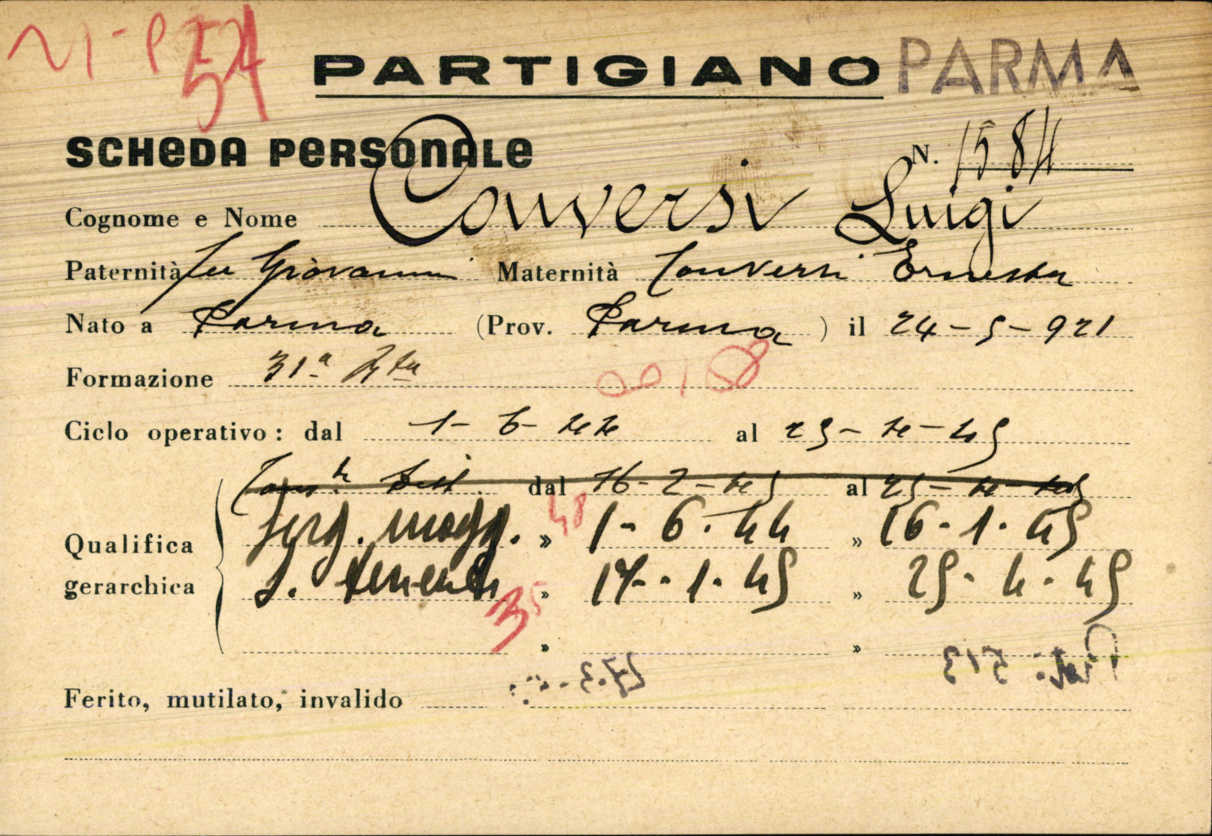 54
PARTIGIANO PARMA
SCHEDA PERSONALE N. 1584
Cognome e Nome Conversi Luigi
Paternità fu Giovanni Maternità Conversi Ernesta
Nato a Parma (Prov. Parma) il 24-5-921
Formazione 31ª Bta
Ciclo operativo: dal 1-6-44 al 25-4-45
dal 16-2-45 al 25-4-45
Qualifica Serg. magg. » 1-6-44 » 16-1-45
gerarchica S. tenente » 17-1-45 » 25-4-45
» »
Ferito, mutilato, invalido